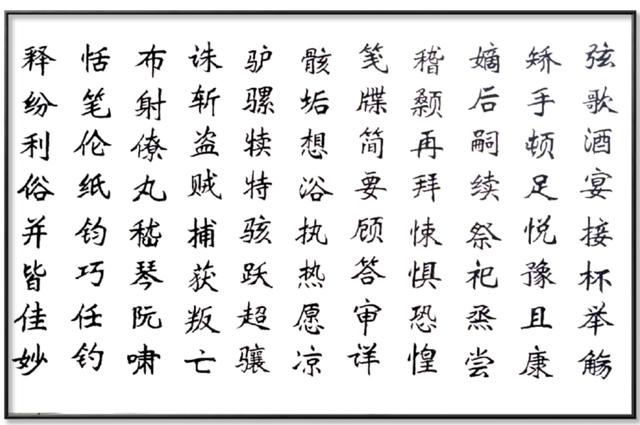 弦歌酒宴接杯举觞
矫手顿足悦豫且康
嫡后嗣续祭祀烝尝
稽颡再拜悚惧恐惶
笺牒简要顾答审详
骸垢想浴执热愿凉
驴骡犊特骇跃超骧
诛斩盗贼捕获叛亡
布射僚丸嵇琴阮啸
恬笔伦纸钧巧任钓
释纷利俗并皆佳妙